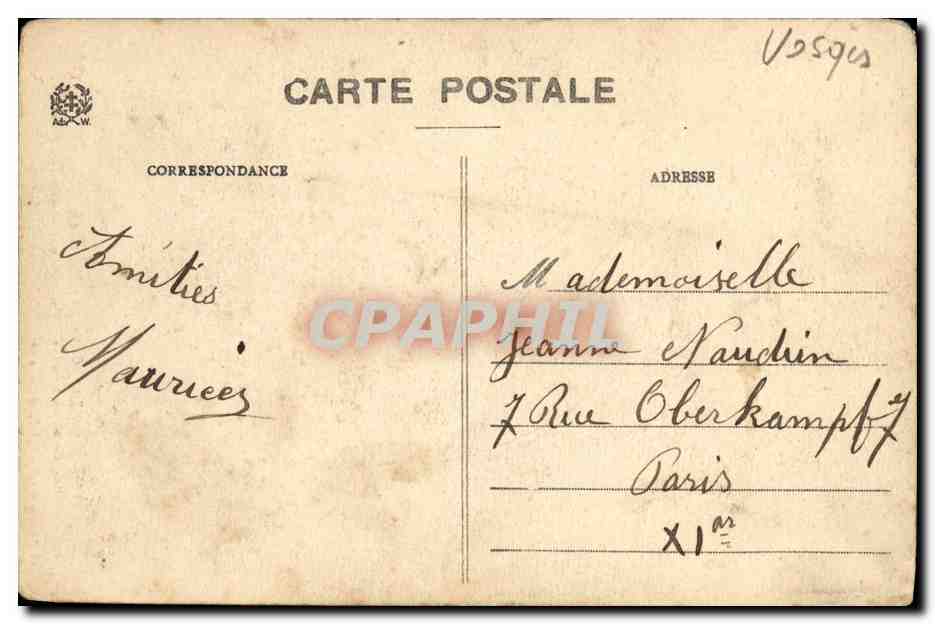 Vosges
CARTE POSTALE
A. W.
CORRESPONDANCE
ADRESSE
Amitiés
Maurice
Mademoiselle
Jeanne Naudin
7 Rue Oberkampf 7
Paris
XI ar
CPAPHIL